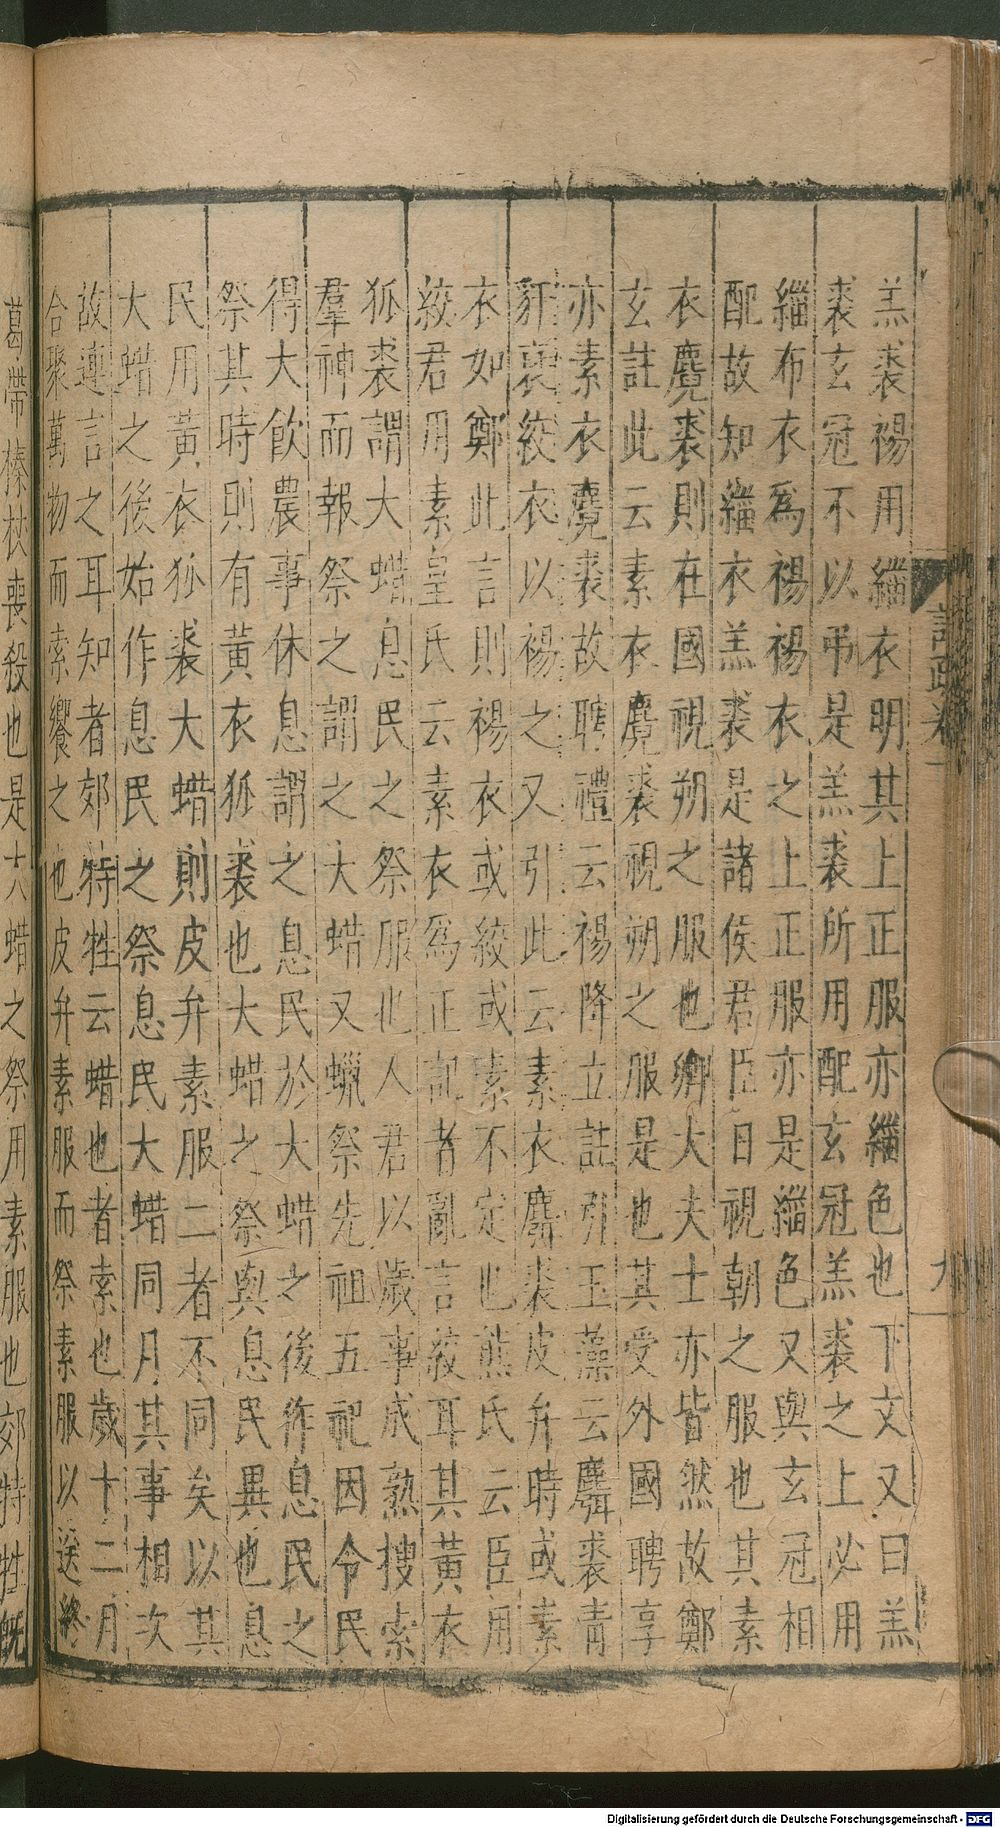 羔裘裼用緇衣明其上正服亦緇色也下文又曰羔
裘玄冠不以弔是羔裘所用配玄冠羔裘之上必用
緇布衣爲裼裼衣之上正服亦是緇色又與玄冠相
配故知緇衣羔裘是諸侯君臣日視朝之服也其素
衣麑裘則在國視朔之服也卿大夫士亦皆然故鄭
玄註此云素衣麑裘視朔之服是也其受外國聘享
亦素衣麑裘故聘禮云裼降立註引玉藻云麛裘青
豻褎絞衣以裼之又引此云素衣麛裘皮弁時或素
衣如鄭此言則裼衣或絞或素不定也熊氏云臣用
絞君用素皇氏云素衣爲正記者亂言絞耳其黃衣
狐裘謂大蜡息民之祭服也人君以歲事成熟搜索
羣神而報祭之謂之大蜡又蠟祭先祖五祀因令民
得大飲農事休息謂之息民於大蜡之後作息民之
祭其時則有黃衣狐裘也大蜡之祭與息民異也息
民用黃衣狐裘大蜡則皮弁素服二者不同矣以其
大蜡之後始作息民之祭息民大蜡同月其事相次
故連言之耳知者郊特牲云蜡也者索也歲十二月
合聚萬物而索饗之也皮弁素服而祭素服以送終
葛帶榛杖喪殺也是大蜡之祭用素服也郊特牲旣
語疏卷
九
Digitalisierung gefördert durch die Deutsche Forschungsgemeinschaft - DFG